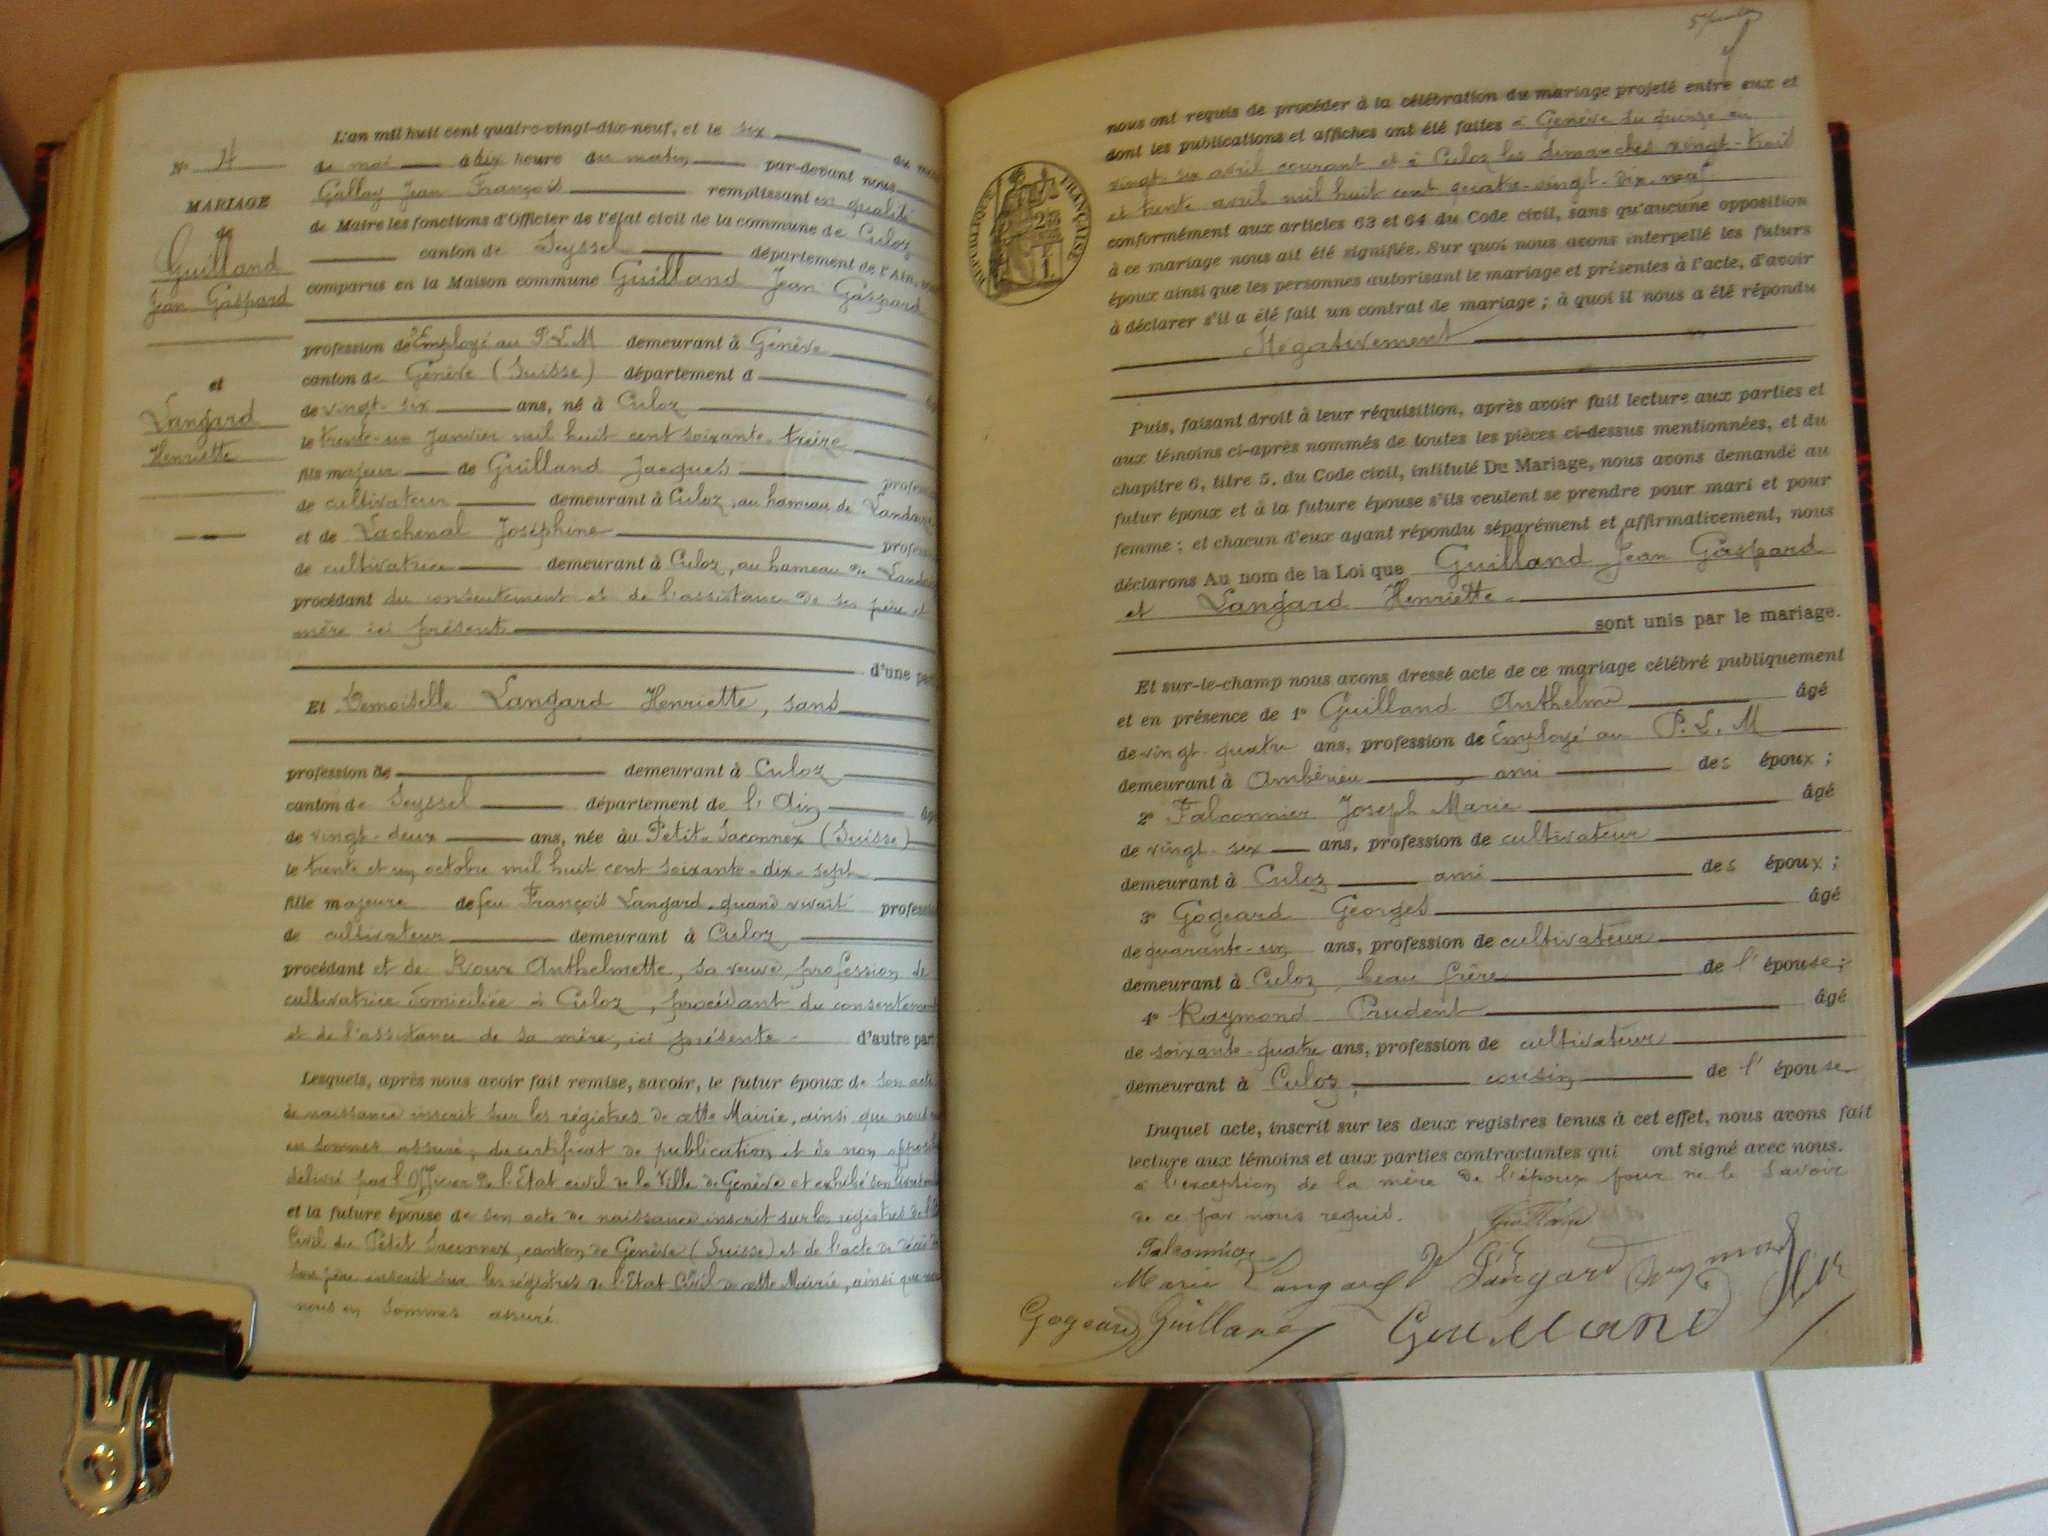 L'an mil huit cent quatre-vingt-dix-neuf, et le six du
N° 4
de mai à dix heure du matin par-devant nous
Gallay Jean François remplissant en qualité
MARIAGE
de Maire les fonctions d'Officier de l'état civil de la commune de Culoz
de
canton de Seyssel département de l'Ain,
Guilland
Jean Gaspard
comparus en la Maison commune Guilland Jean Gaspard
profession de Employé au P.L.M demeurant à Genève
et
canton de Genève (Suisse) département d
Langard
Henriette
de vingt-six ans, né à Culoz
le trente-un Janvier mil huit cent soixante-treize
fils majeur de Guilland Jacques
de cultivateur demeurant à Culoz, au hameau de
et de Lachenal Joséphine
de cultivatrice demeurant à Culoz, au hameau de
procédant du consentement et de l'assistance de ses père et
mère ici présents
d'une part
Et Demoiselle Langard Henriette, sans
profession de demeurant à Culoz
canton de Seyssel département de l'Ain
de vingt-deux ans, née au Petit-Saconnex (Suisse)
le trente et un octobre mil huit cent soixante-dix-sept
fille majeure de feu François Langard quand vivait
de cultivateur demeurant à Culoz
procédant et de Roux Anthelmette, sa veuve, profession de
cultivatrice domiciliée à Culoz, procédant du consentement
et de l'assistance de sa mère, ici présente d'autre part
Lesquels, après nous avoir fait remise, savoir, le futur époux de son acte
de naissance inscrit sur les régistres de cette Mairie, ainsi que nous
en sommes assuré, du certificat de publication et de non
délivré par l'Officier de l'Etat civil de la Ville de Genève et exhibé son
et la future épouse de son acte de naissance inscrit sur les régistres de
Civil du Petit Saconnex, canton de Genève (Suisse) et de l'acte de décès de
son père inscrit sur les régistres de l'Etat Civil de cette Mairie, ainsi que
nous en sommes assuré.
nous ont requis de procéder à la célébration du mariage projeté entre eux et
dont les publications et affiches ont été faites à Genève du quinze au
vingt-six avril courant et à Culoz les dimanches vingt-trois
et trente avril mil huit cent quatre-vingt-dix-neuf
RÉPUBLIQUE FRANÇAISE
conformément aux articles 63 et 64 du Code civil, sans qu'aucune opposition
à ce mariage nous ait été signifiée. Sur quoi nous avons interpellé les futurs
époux ainsi que les personnes autorisant le mariage et présentes à l'acte, d'avoir
à déclarer s'il a été fait un contrat de mariage ; à quoi il nous a été répondu
Négativement
Puis, faisant droit à leur réquisition, après avoir fait lecture aux parties et
aux témoins ci-après nommés de toutes les pièces ci-dessus mentionnées, et du
chapitre 6, titre 5, du Code civil, intitulé Du Mariage, nous avons demandé au
futur époux et à la future épouse s'ils veulent se prendre pour mari et pour
femme ; et chacun d'eux ayant répondu séparément et affirmativement, nous
déclarons Au nom de la Loi que Guilland Jean Gaspard
et Langard Henriette
sont unis par le mariage.
Et sur-le-champ nous avons dressé acte de ce mariage célébré publiquement
et en présence de 1° Guilland Anthelme âgé
de vingt-quatre ans, profession de Employé au P.L.M
demeurant à Ambérieu ami des époux ;
2° Falconnier Joseph Marie âgé
de vingt-six ans, profession de cultivateur
demeurant à Culoz ami des époux ;
3° Gogeard Georges âgé
de quarante-un ans, profession de cultivateur
demeurant à Culoz beau frère de l'épouse ;
4° Raymond Prudent âgé
de soixante-quatre ans, profession de cultivateur
demeurant à Culoz, cousin de l'épouse
Duquel acte, inscrit sur les deux registres tenus à cet effet, nous avons fait
lecture aux témoins et aux parties contractantes qui ont signé avec nous.
à l'exception de la mère de l'époux pour ne le savoir
de ce par nous requis.
Guilland
Falconnier
Marie Langard Langard Raymond
Gogeard Guilland Guilland